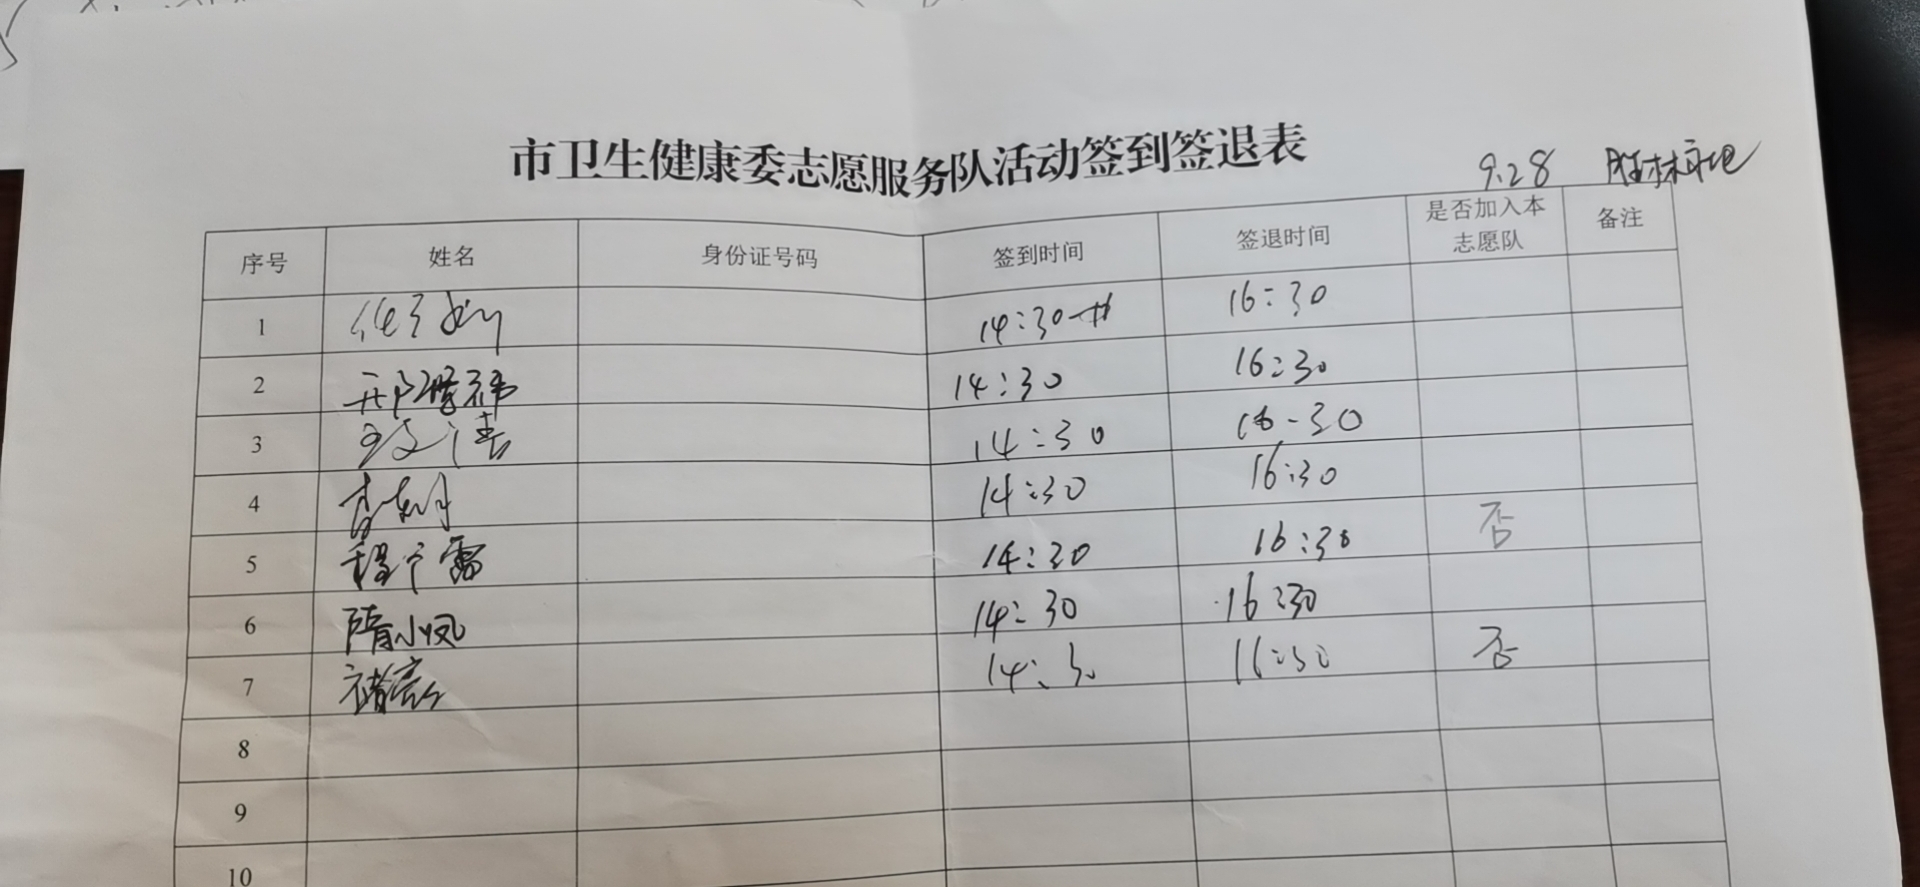 市卫生健康委志愿服务队活动签到签退表
9.28
序号 姓名 身份证号码 签到时间 签退时间 是否加入本志愿队 备注
1 14:30 16:30
2 14:30 16:30
3 14:30 16-30
4 14:30 16:30
5 程宁露 14:30 16:30 否
6 隋小凤 14:30 16:30
7 褚亮 14:30 16:30 否
8
9
10